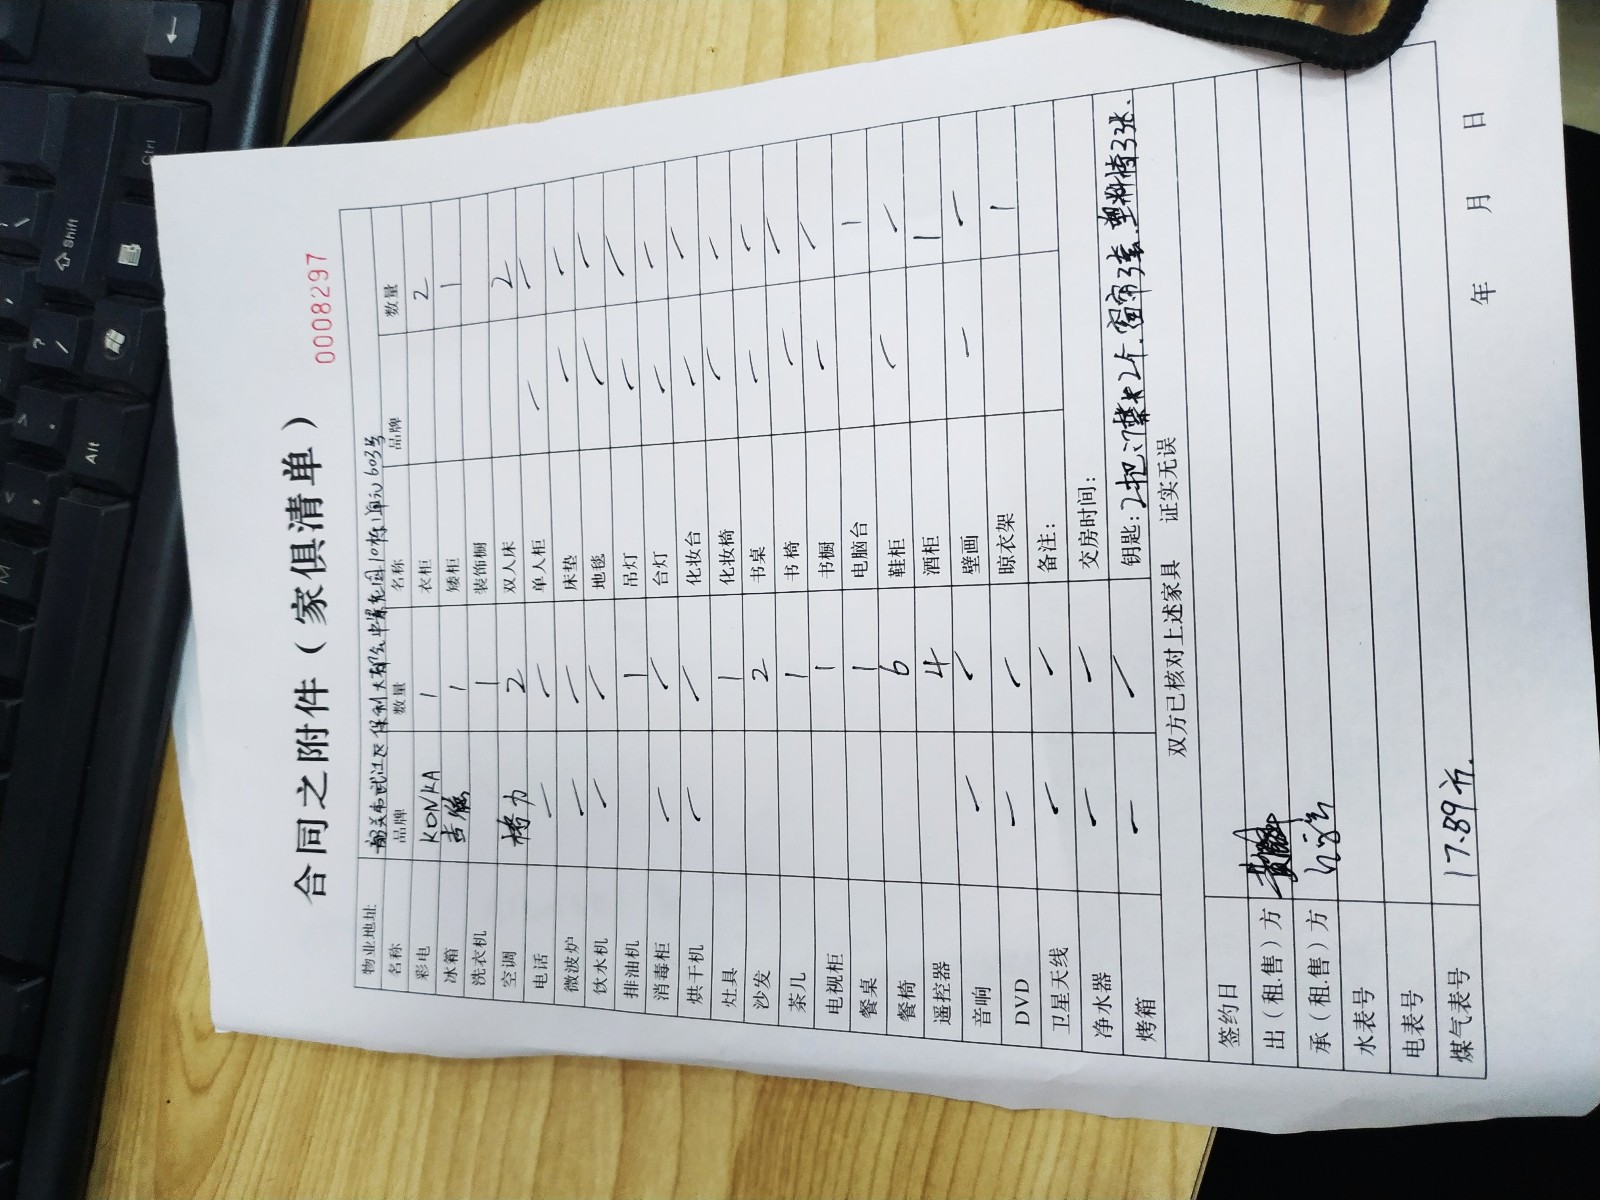 0008297
合同之附件（家俱清单）
物业地址: 韶关市武江区保利大都会中景花园10栋1单元603号
名称 品牌 数量 名称 品牌 数量
彩电 KONKA 1 衣柜 2
冰箱 1 矮柜 1
洗衣机 1 装饰橱
空调 格力 2 双人床 2
电话 / / 单人柜 / /
微波炉 / / 床垫 / /
饮水机 / / 地毯 / /
排油机 1 吊灯 / /
消毒柜 / / 台灯 / /
烘干机 / / 化妆台 / /
灶具 1 化妆椅 / /
沙发 2 书桌 / /
茶儿 1 书椅 / /
电视柜 1 书橱 / /
餐桌 1 电脑台 1
餐椅 6 鞋柜 / /
遥控器 4 酒柜 1
音响 / / 壁画 / /
DVD / / 晾衣架 1
卫星天线 / / 备注:
净水器 / / 交房时间:
烤箱 / / 钥匙: 2把.门禁卡2个.窗帘3套.塑料椅33张.
双方已核对上述家具 证实无误
签约日
出（租.售）方
承（租.售）方
水表号
电表号
煤气表号 17.89方.
年 月 日
Shift
Ctrl
Alt